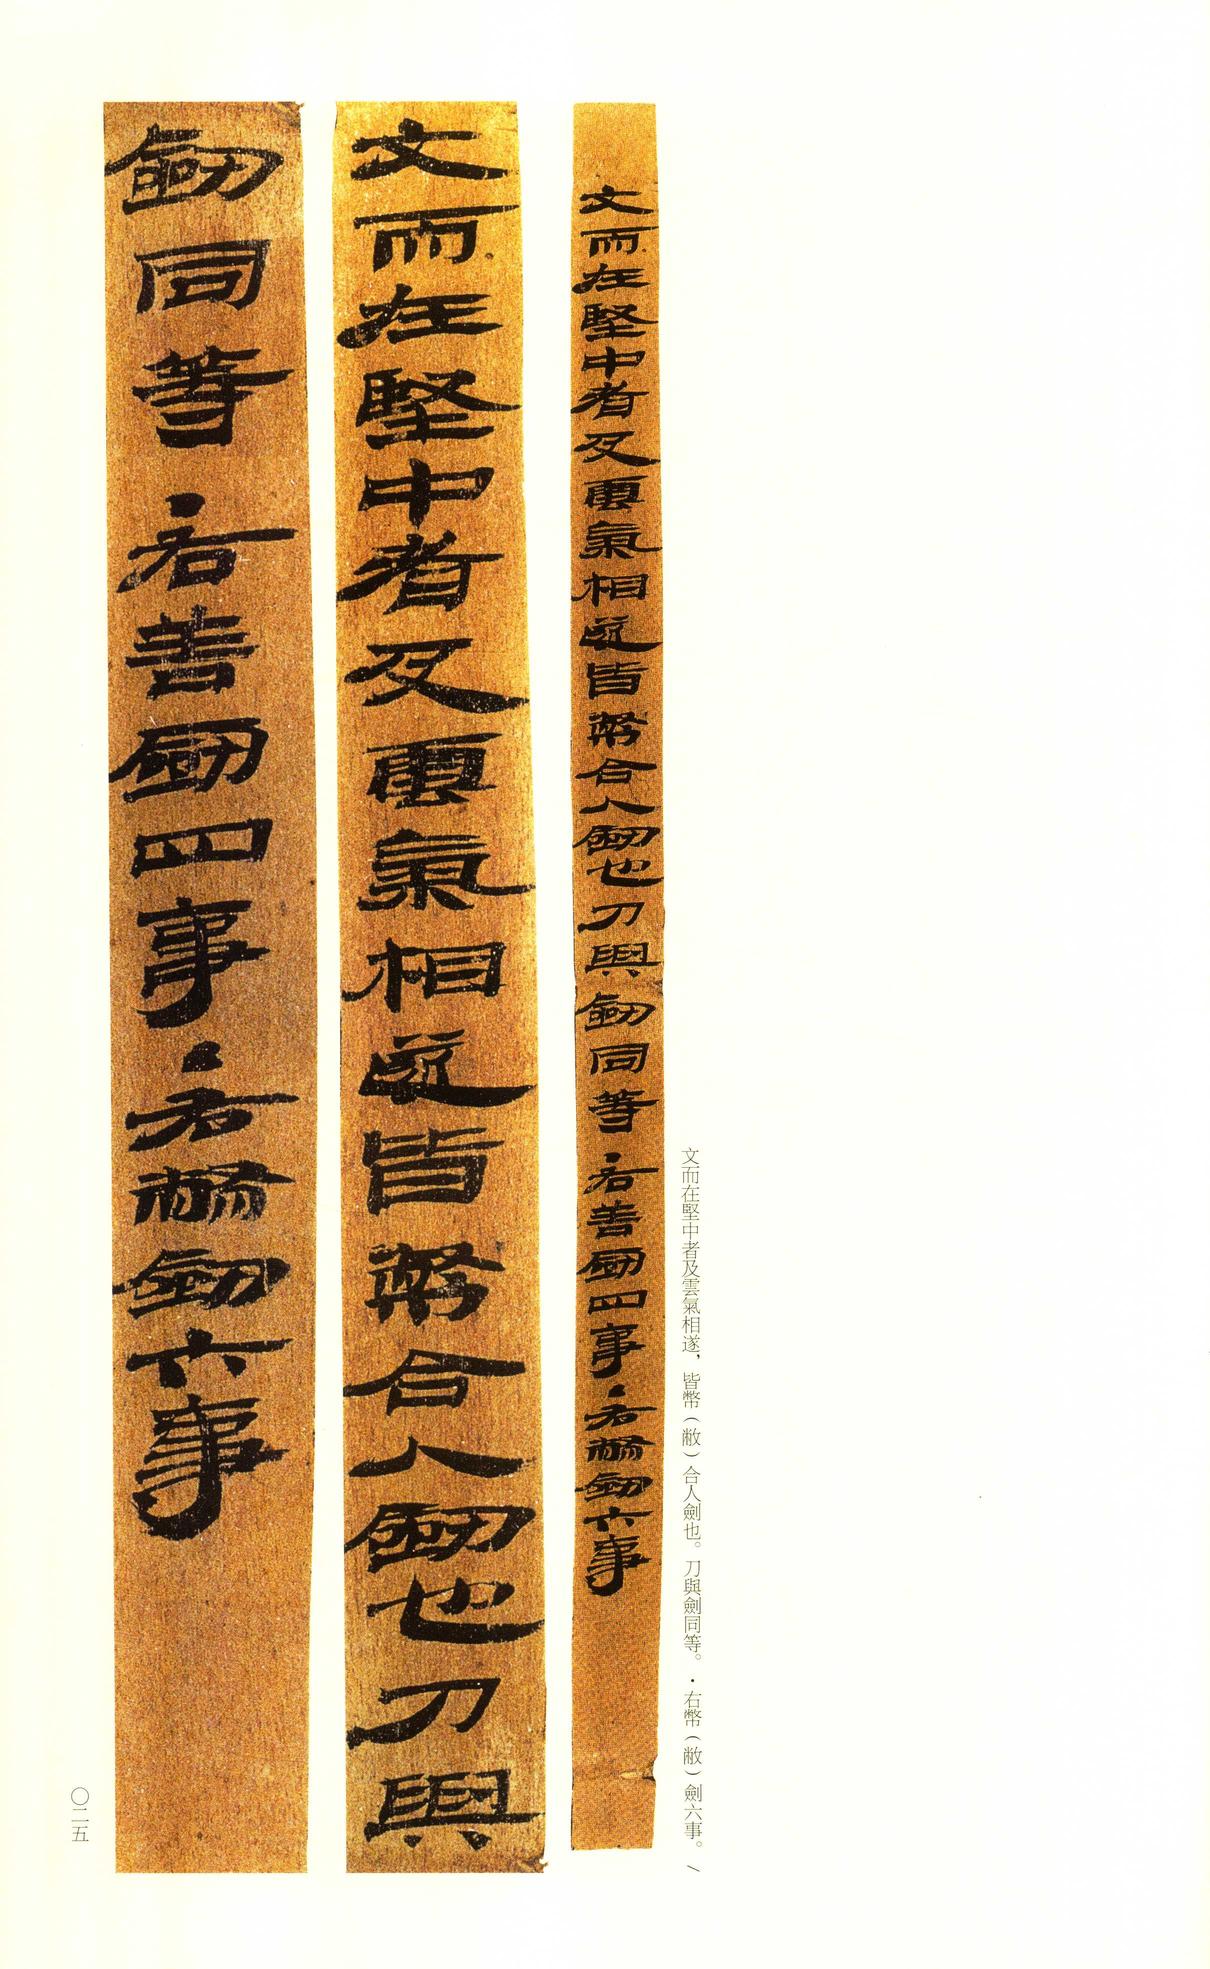 文而在堅中者及雲氣相遂，皆幣（敝）合人劍也。刀與劍同等。·右幣（敝）劍六事。/
文而在堅中者及雲氣相遂皆幣合人劍也刀與劍同等·右善劍四事·右幣劍六事
文而在堅中者及雲氣相遂皆幣合人劍也刀與
劍同等·右善劍四事·右幣劍六事
〇二五